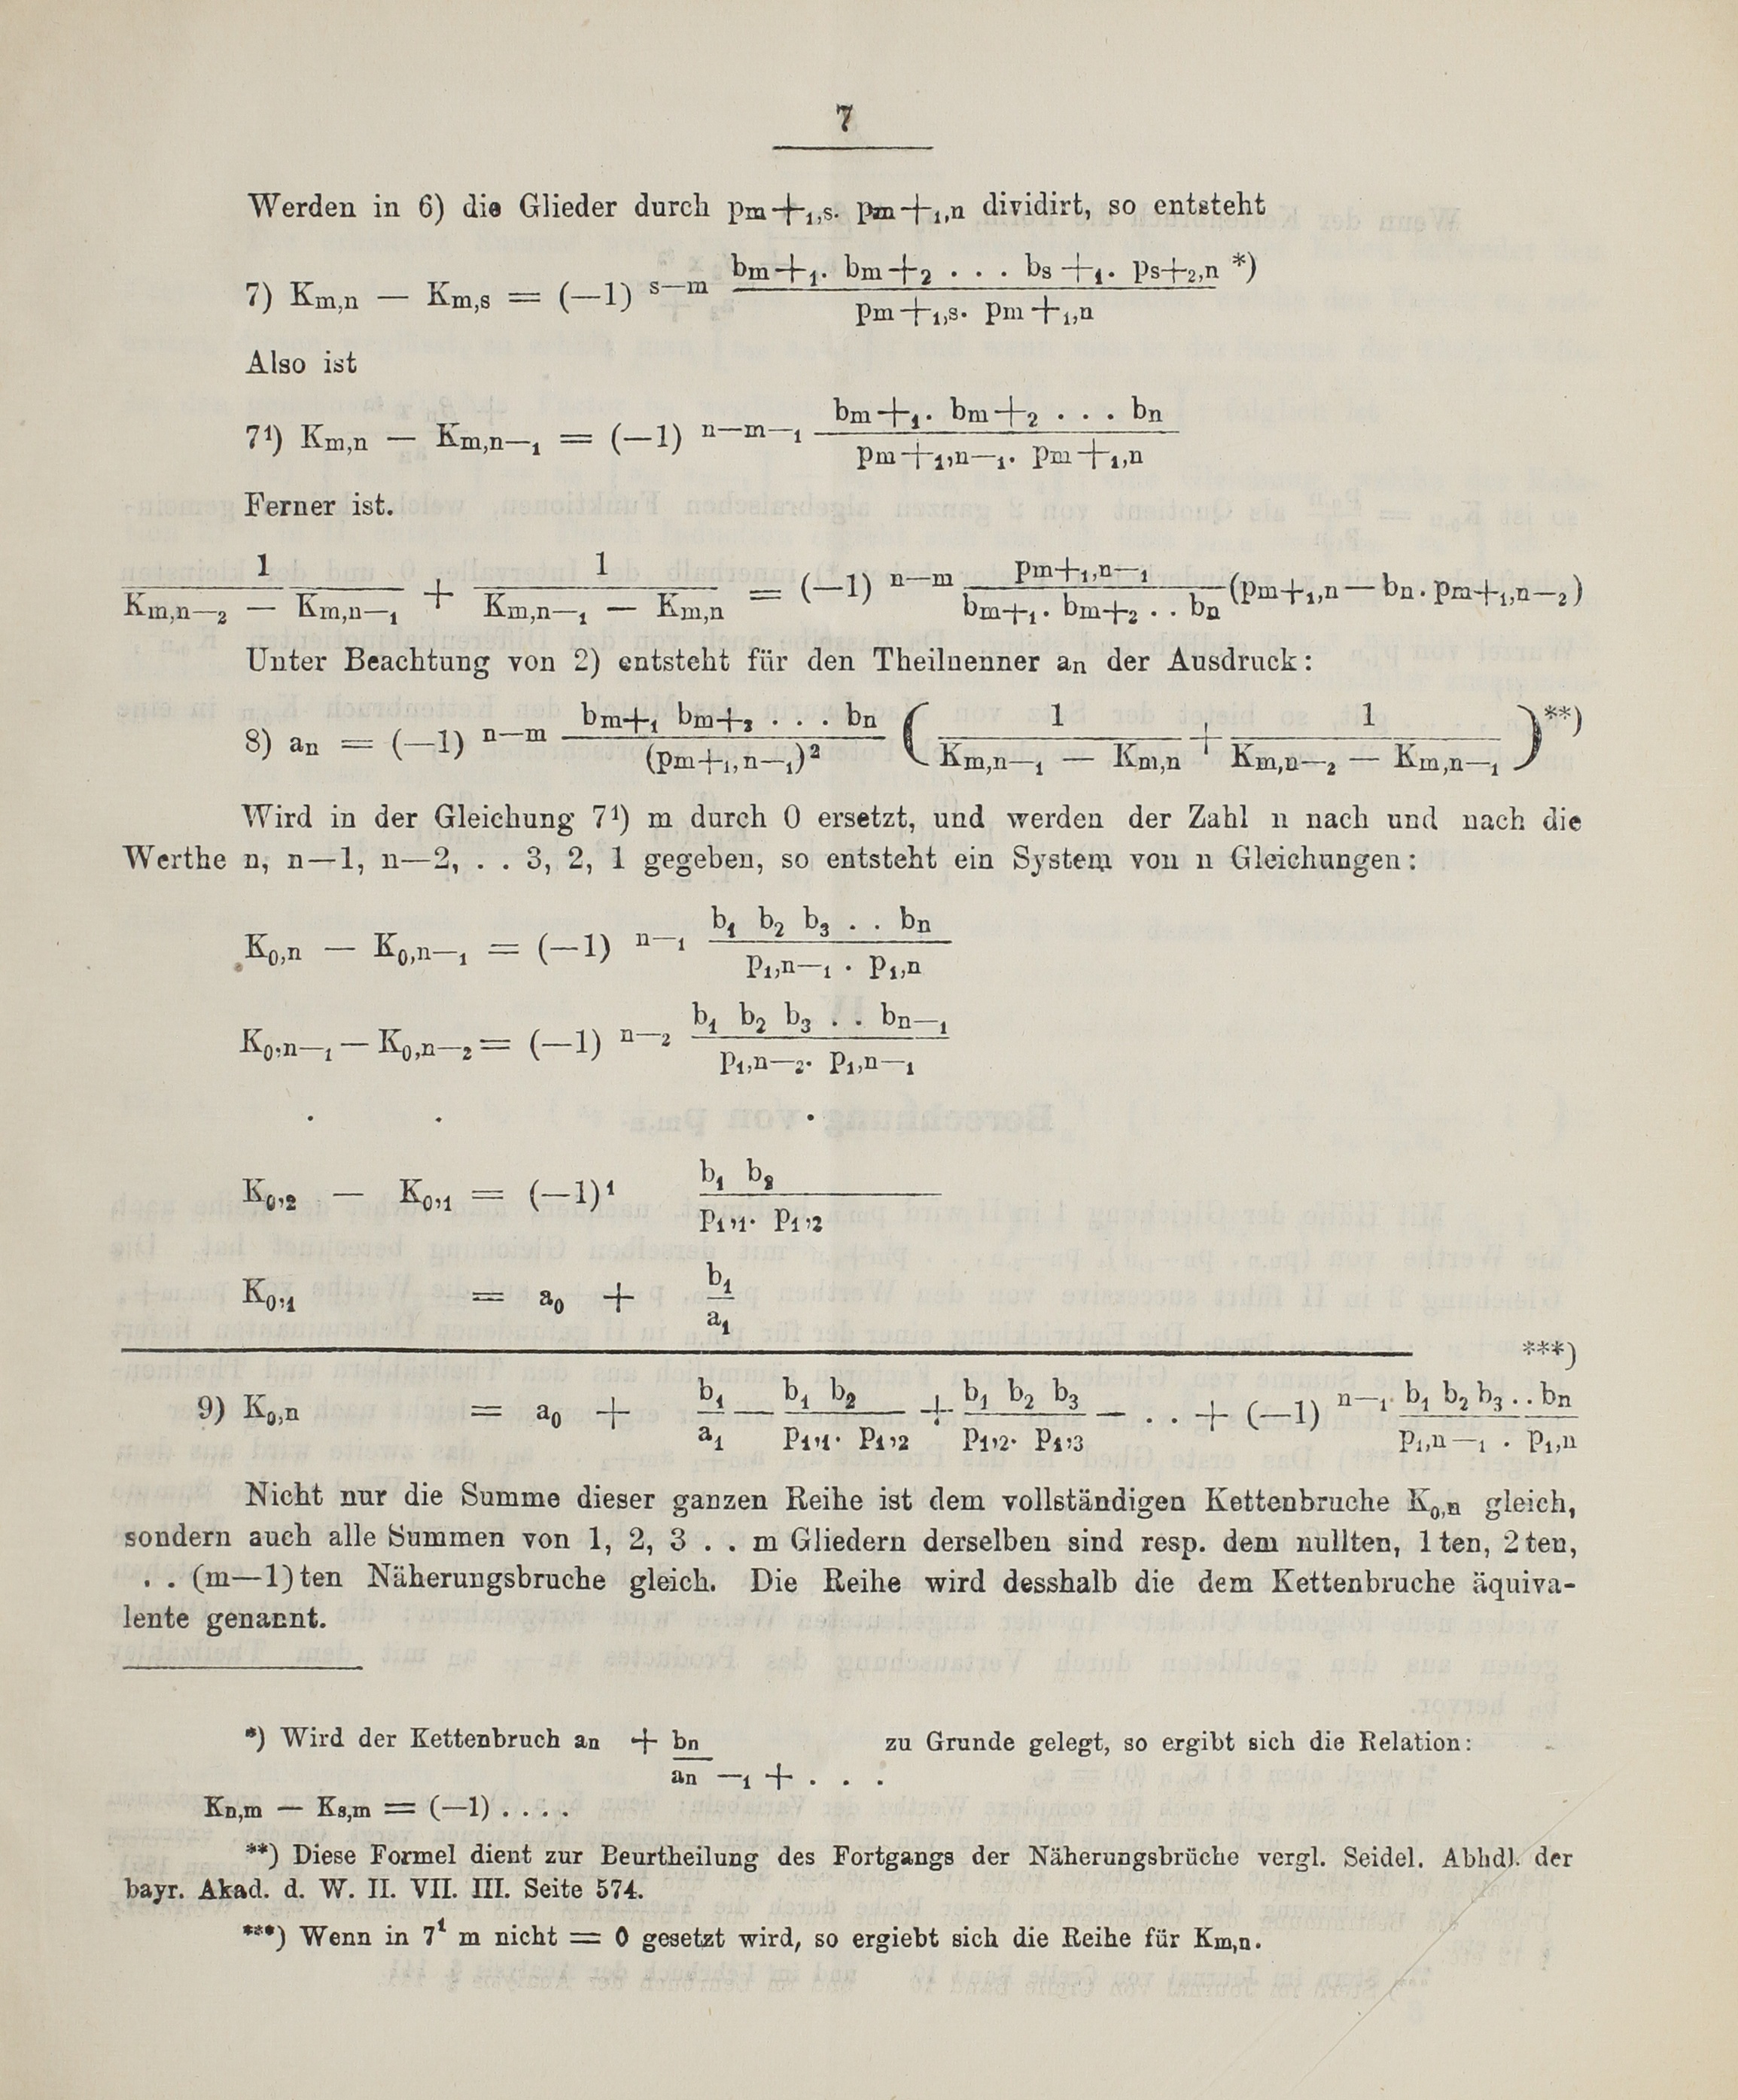 7
Werden in 6) die Glieder durch p_{m+1,s}. p_{m+1,n} dividirt, so entsteht
7) K_{m,n} — K_{m,s} = (—1)^{s—m} \frac{b_{m+1}. b_{m+2} . . . b_{s+1}. p_{s+2,n}}{p_{m+1,s}. p_{m+1,n}} *)
Also ist
7¹) K_{m,n} — K_{m,n—1} = (—1)^{n—m—1} \frac{b_{m+1}. b_{m+2} . . . b_n}{p_{m+1,n—1}. p_{m+1,n}}
Ferner ist.
\frac{1}{K_{m,n—2} — K_{m,n—1}} + \frac{1}{K_{m,n—1} — K_{m,n}} = (—1)^{n—m} \frac{p_{m+1,n—1}}{b_{m+1}. b_{m+2} . . b_n} (p_{m+1,n} — b_n. p_{m+1,n—2})
Unter Beachtung von 2) entsteht für den Theilnenner a_n der Ausdruck:
8) a_n = (—1)^{n—m} \frac{b_{m+1} b_{m+2} . . . b_n}{(p_{m+1,n—1})^2} ( \frac{1}{K_{m,n—1} — K_{m,n}} + \frac{1}{K_{m,n—2} — K_{m,n—1}} ) **)
Wird in der Gleichung 7¹) m durch 0 ersetzt, und werden der Zahl n nach und nach die
Werthe n, n—1, n—2, . . 3, 2, 1 gegeben, so entsteht ein System von n Gleichungen:
K_{0,n} — K_{0,n—1} = (—1)^{n—1} \frac{b_1 b_2 b_3 . . b_n}{p_{1,n—1} . p_{1,n}}
K_{0,n—1} — K_{0,n—2} = (—1)^{n—2} \frac{b_1 b_2 b_3 . . b_{n—1}}{p_{1,n—2}. p_{1,n—1}}
. . .
K_{0,2} — K_{0,1} = (—1)^1 \frac{b_1 b_2}{p_{1,1}. p_{1,2}}
K_{0,1} = a_0 + \frac{b_1}{a_1}
***)
9) K_{0,n} = a_0 + \frac{b_1}{a_1} — \frac{b_1 b_2}{p_{1,1}. p_{1,2}} + \frac{b_1 b_2 b_3}{p_{1,2}. p_{1,3}} — . . + (—1)^{n—1} \frac{b_1 b_2 b_3 . . b_n}{p_{1,n—1} . p_{1,n}}
Nicht nur die Summe dieser ganzen Reihe ist dem vollständigen Kettenbruche K_{0,n} gleich,
sondern auch alle Summen von 1, 2, 3 . . m Gliedern derselben sind resp. dem nullten, 1ten, 2ten,
. . (m—1)ten Näherungsbruche gleich. Die Reihe wird desshalb die dem Kettenbruche äquiva-
lente genannt.
*) Wird der Kettenbruch a_n + \frac{b_n}{a_{n—1} + . . .} zu Grunde gelegt, so ergibt sich die Relation:
K_{n,m} — K_{s,m} = (—1) . . . .
**) Diese Formel dient zur Beurtheilung des Fortgangs der Näherungsbrüche vergl. Seidel. Abhdl. der
bayr. Akad. d. W. II. VII. III. Seite 574.
***) Wenn in 7¹ m nicht = 0 gesetzt wird, so ergiebt sich die Reihe für K_{m,n}.